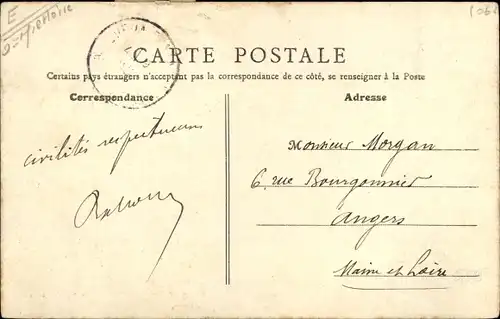 E
CARTE POSTALE
Certains pays étrangers n'acceptent pas la correspondance de ce côté, se renseigner à la Poste
Correspondance
civilités respectueuses
Adresse
Monsieur Morgan
6, rue Bourgonnier
Angers
Maine et Loire